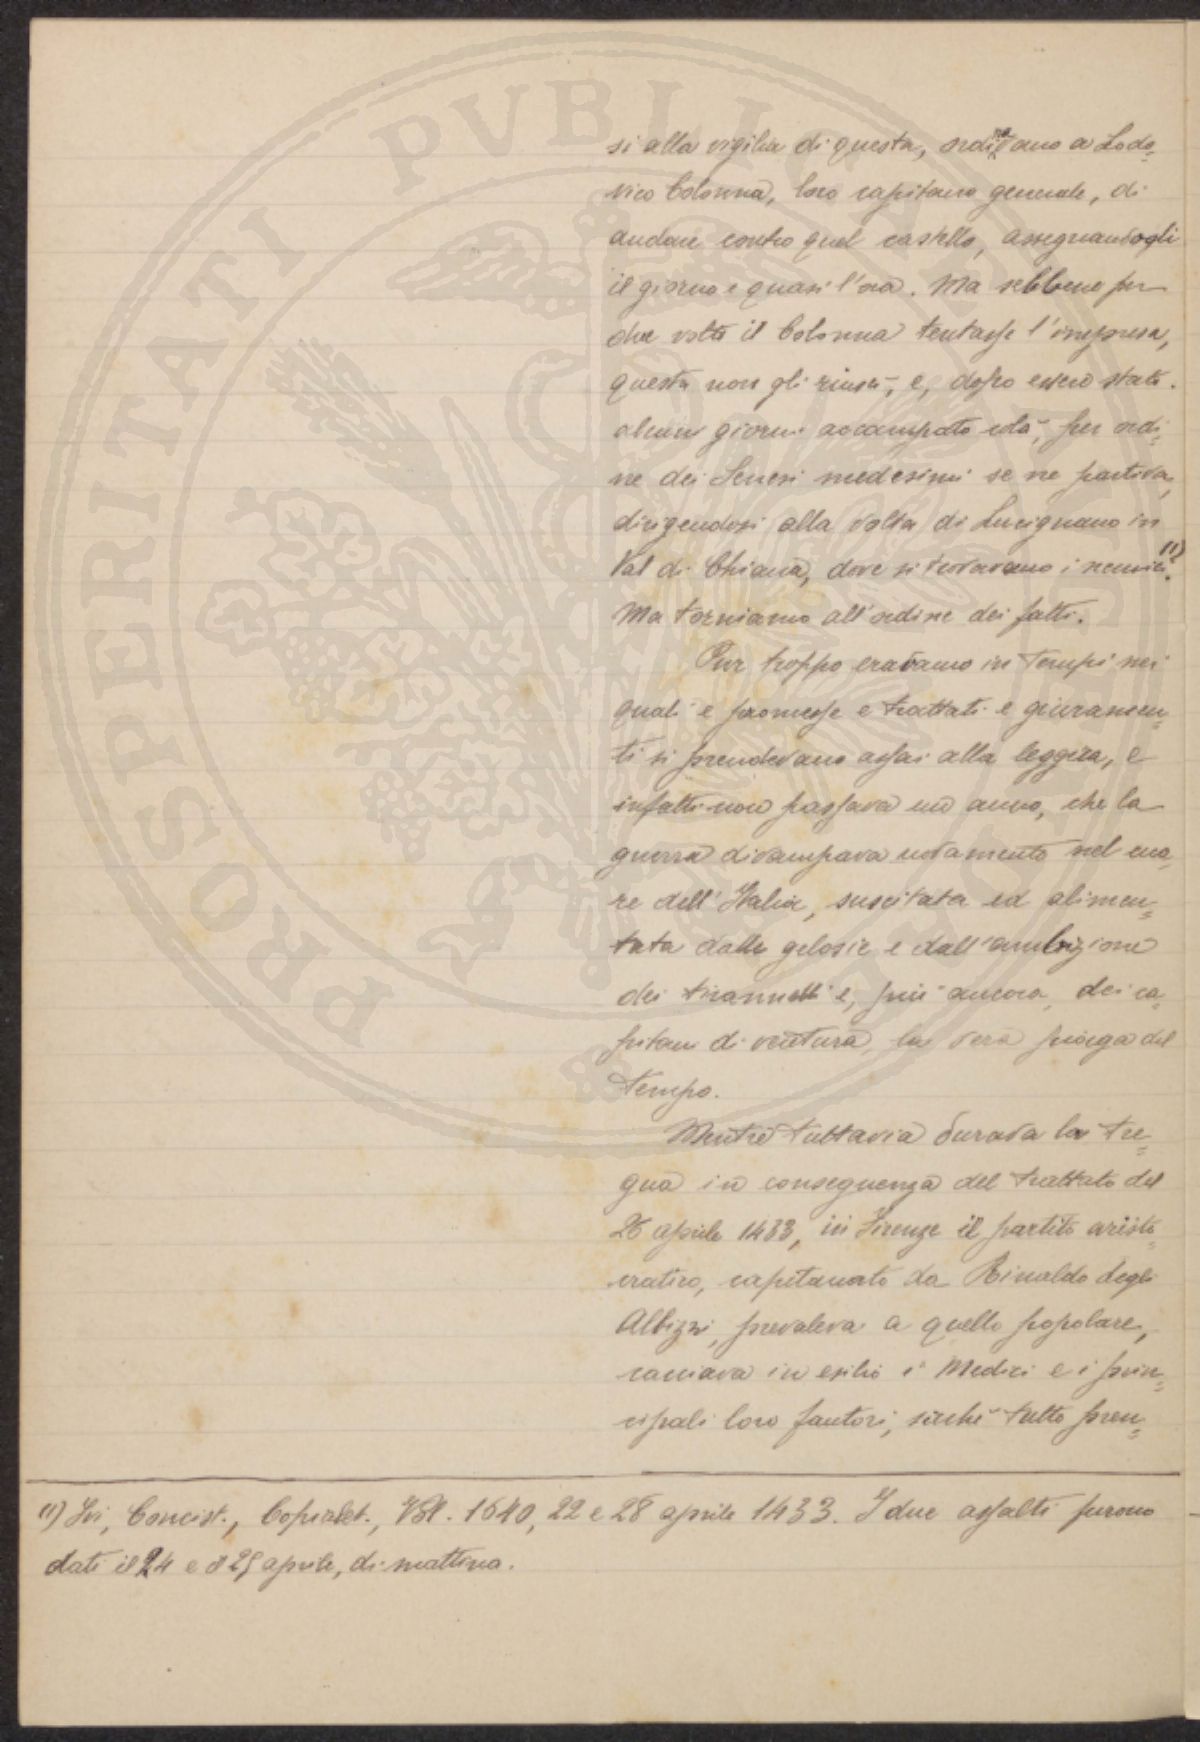 si alla vigilia di questa, ordinavano a Lodo=
vico Colonna, loro capitano generale, di
andare contro quel castello, assegnandogli
il giorno e quasi l'ora. Ma sebbene per
due volte il Colonna tentasse l'impresa,
questa non gli riuscì, e, dopo essere stato
alcuni giorni accampato colà, per ordi=
ne dei Senesi medesimi se ne partiva,
dirigendosi alla volta di Lucignano in
Val di Chiana, dove si trovavano i nemici. (1)
Ma torniamo all'ordine dei fatti.
Pur troppo eravamo in tempi nei
quali e promesse e trattati e giuramen=
ti si prendevano assai alla leggera, e
infatti non passava un anno, che la
guerra divampava novamente nel cuo=
re dell'Italia, suscitata ed alimen=
tata dalle gelosie e dall'ambizione
dei tirannelli e, più ancora, dei ca=
pitani di ventura, la vera piaga del
tempo.
Mentre tuttavia durava la tre=
gua in conseguenza del trattato del
26 aprile 1433, in Firenze il partito aristo=
cratico, capitanato da Rinaldo degli
Albizzi, prevaleva a quello popolare,
cacciava in esilio i Medici e i prin=
cipali loro fautori, sicché tutto pren=
(1) Ivi, Concist., Copialet., Vol. 1640, 22 e 28 aprile 1433. I due assalti furono
dati il 24 e il 25 aprile, di mattina.
PROSPERITATI PVBLICAE